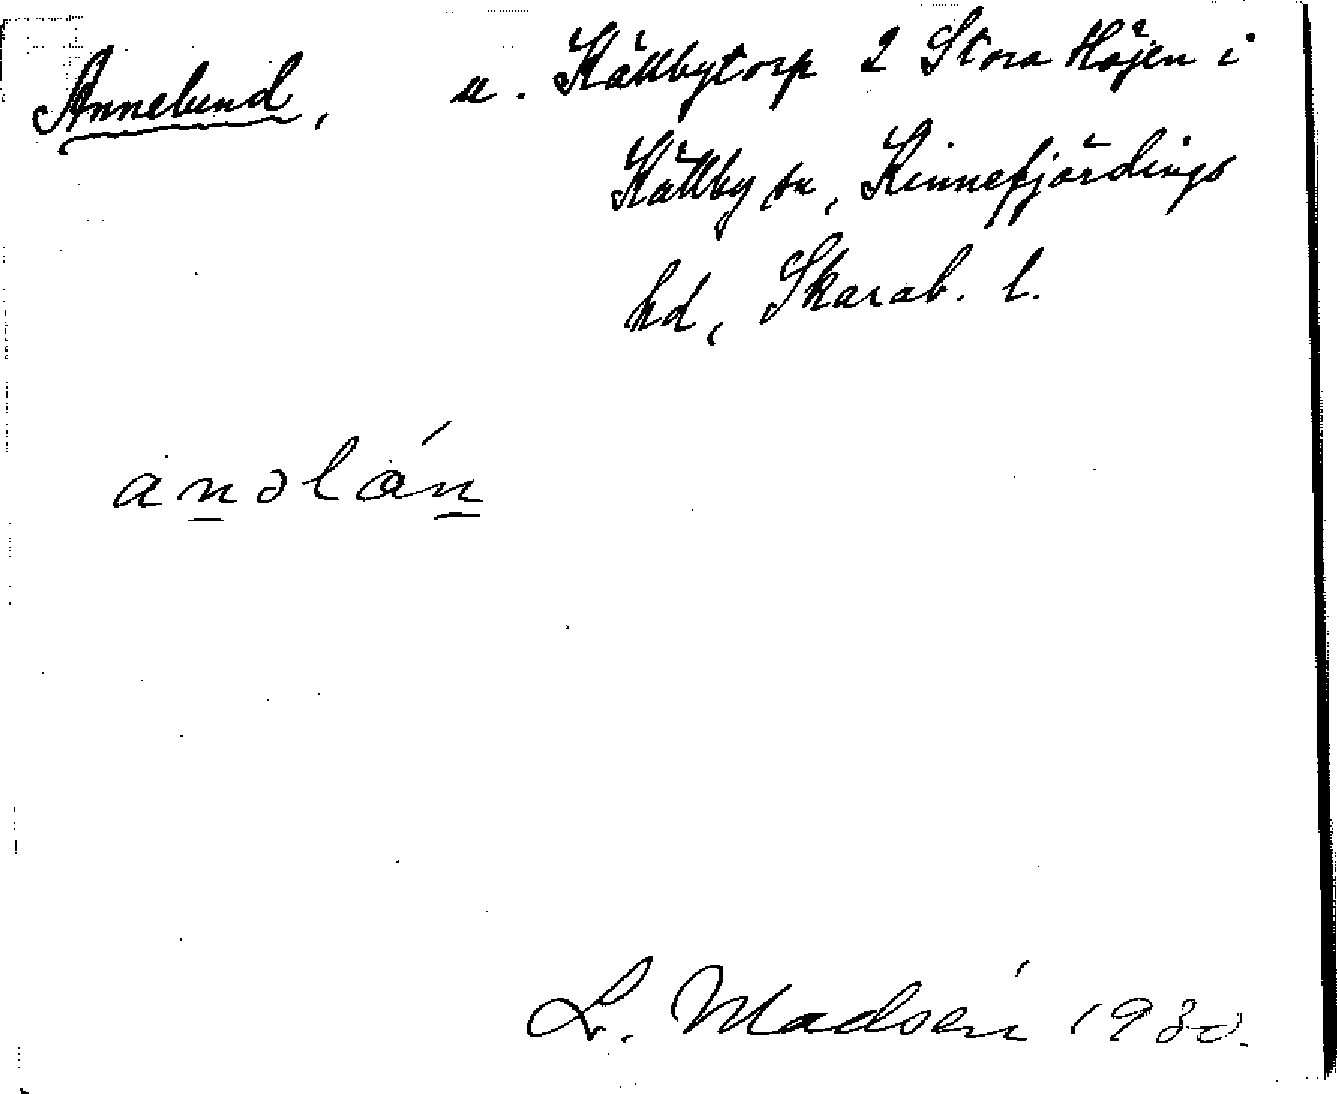 Annelund, u. Källbytorp 2 Stora Höjen i
Källby sn, Kinnefjärdings
hd, Skarab. l.
anəlán
L. Madsén 1930.